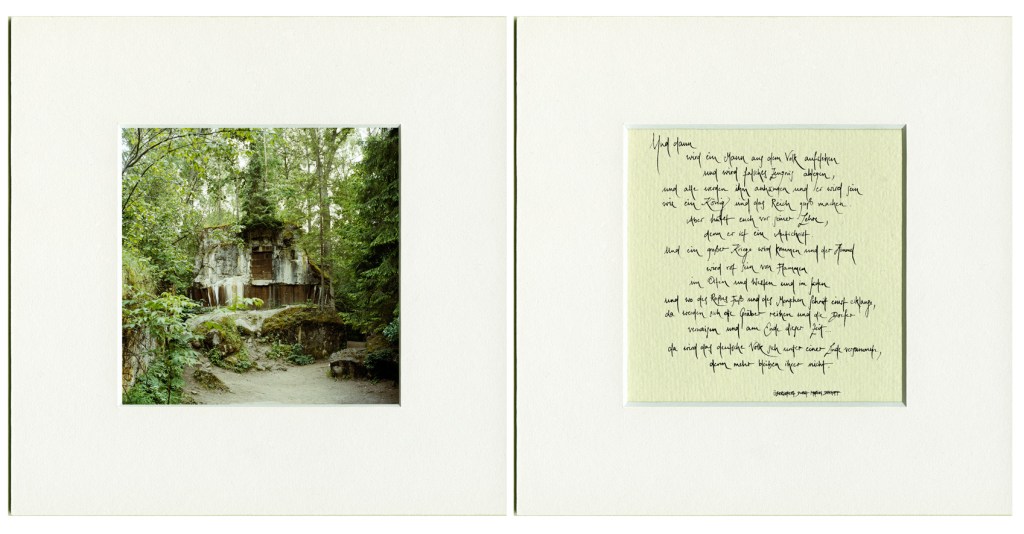 Und dann
wird ein Mann aus dem Volk aufstehen
und wird falsches Zeugnis ablegen,
und alle werden ihm anhängen und er wird sein
wie ein König und das Reich groß machen
Aber hütet euch vor seiner
denn er ist ein Antichrist.
Und ein großer Krieg wird kommen und der Himmel
wird rot sein von Flammen
im Osten und Westen und im
und wo des Rosses Fuß und des Menschen Schritt einst erklangs,
da werden sich die Gräber reihen und die Dörfer
verwaisen und am Ende dieser Zeit
da wird das deutsche Volk sich unter einer Linde versammeln,
denn mehr bleiben ihrer nicht.